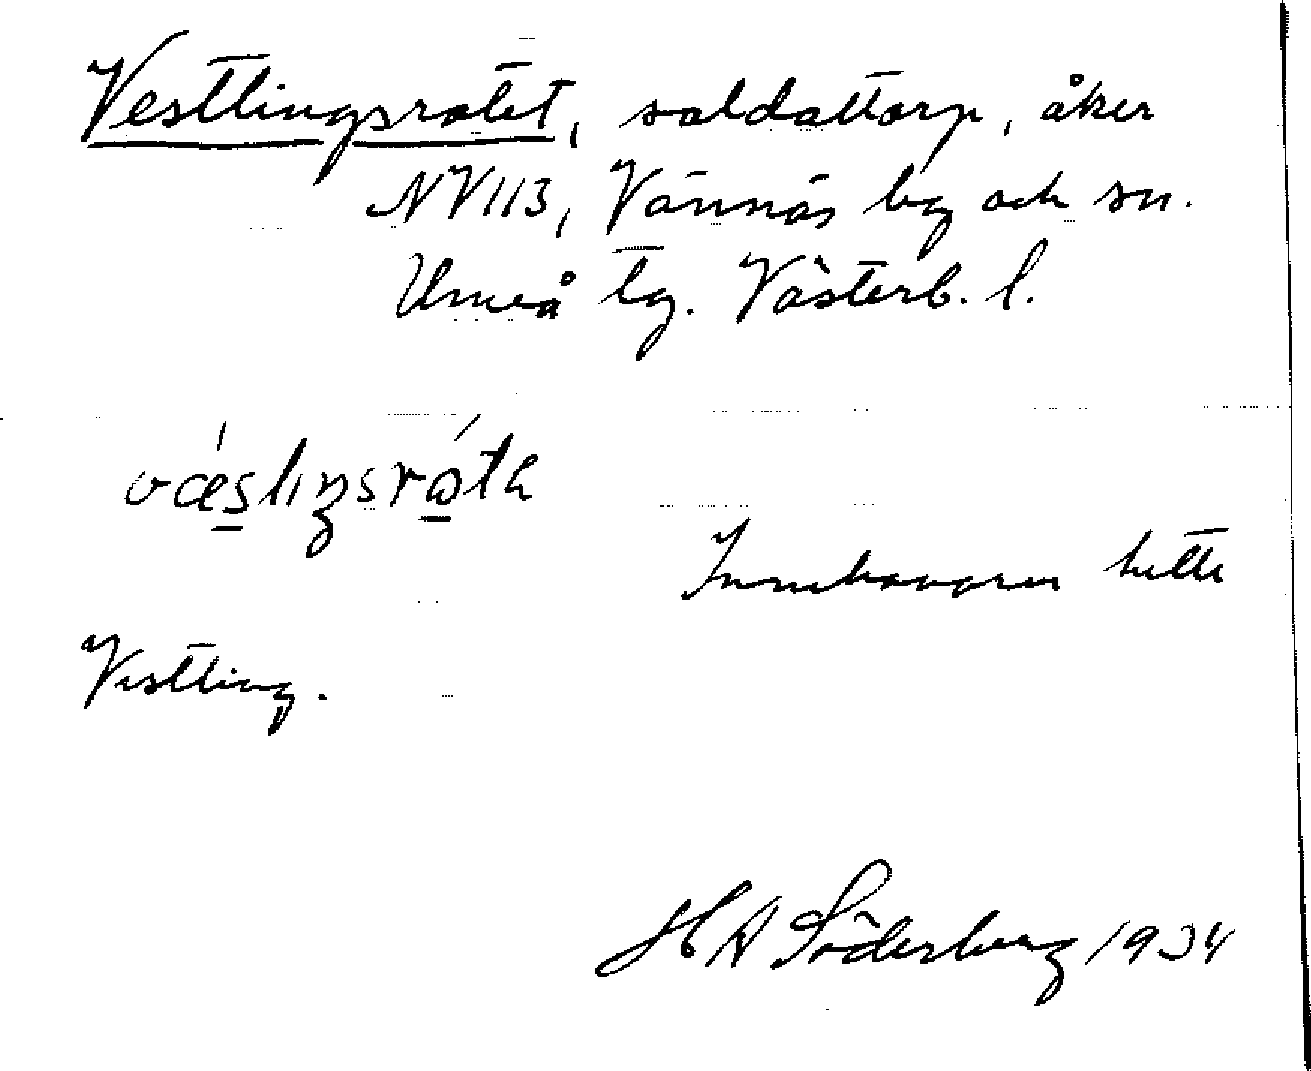 Vestlingsrotet, soldattorp, åker
NV113, Vännäs by och sn.
Umeå tg. Västerb. l.
væslıŋsrɷtɛ
Innehavaren hette
Vestling.
H A Söderberg 1934